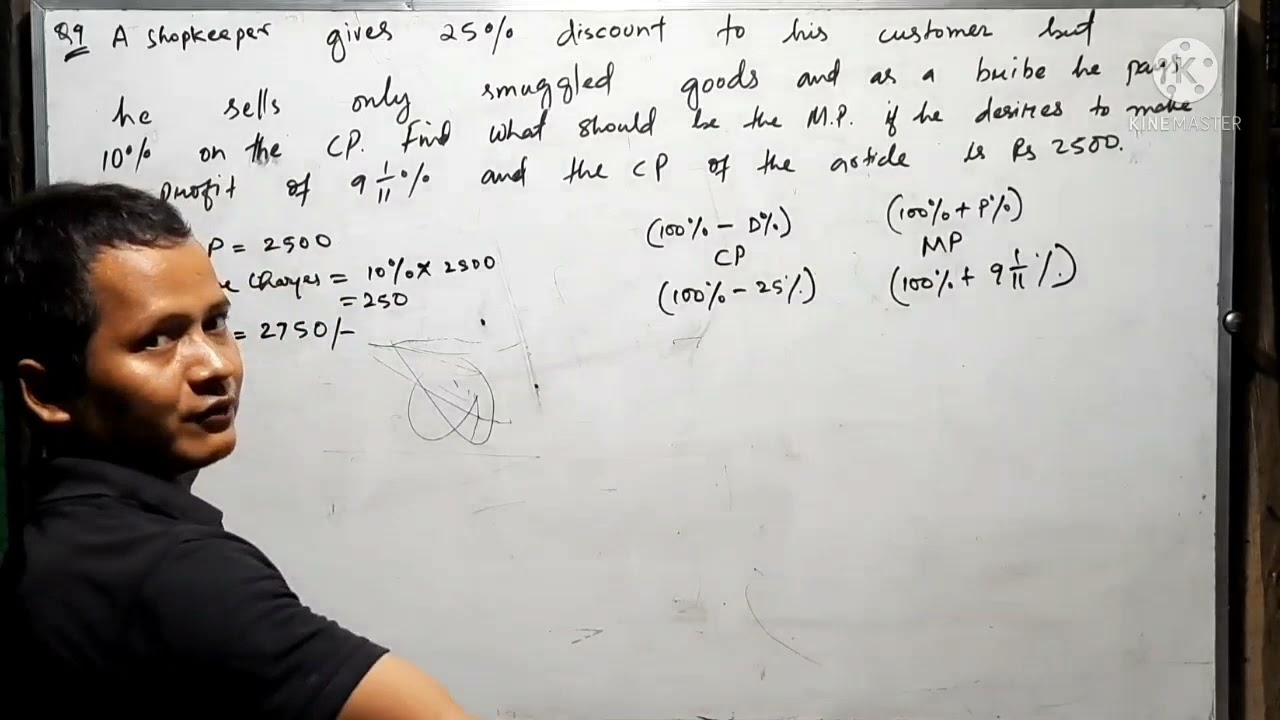 Q9 A shopkeeper gives 25% discount to his customer but
he sells only smuggled goods and as a bribe he pays
10% on the CP. Find what should be the M.P. if he desires to make
profit of 9 1/11% and the CP of the article is Rs 2500.
P = 2500
Charges = 10% × 2500
= 250
= 2750/-
(100% - D%) (100% + P%)
CP MP
(100% - 25%) (100% + 9 1/11%)
K
KINEMASTER